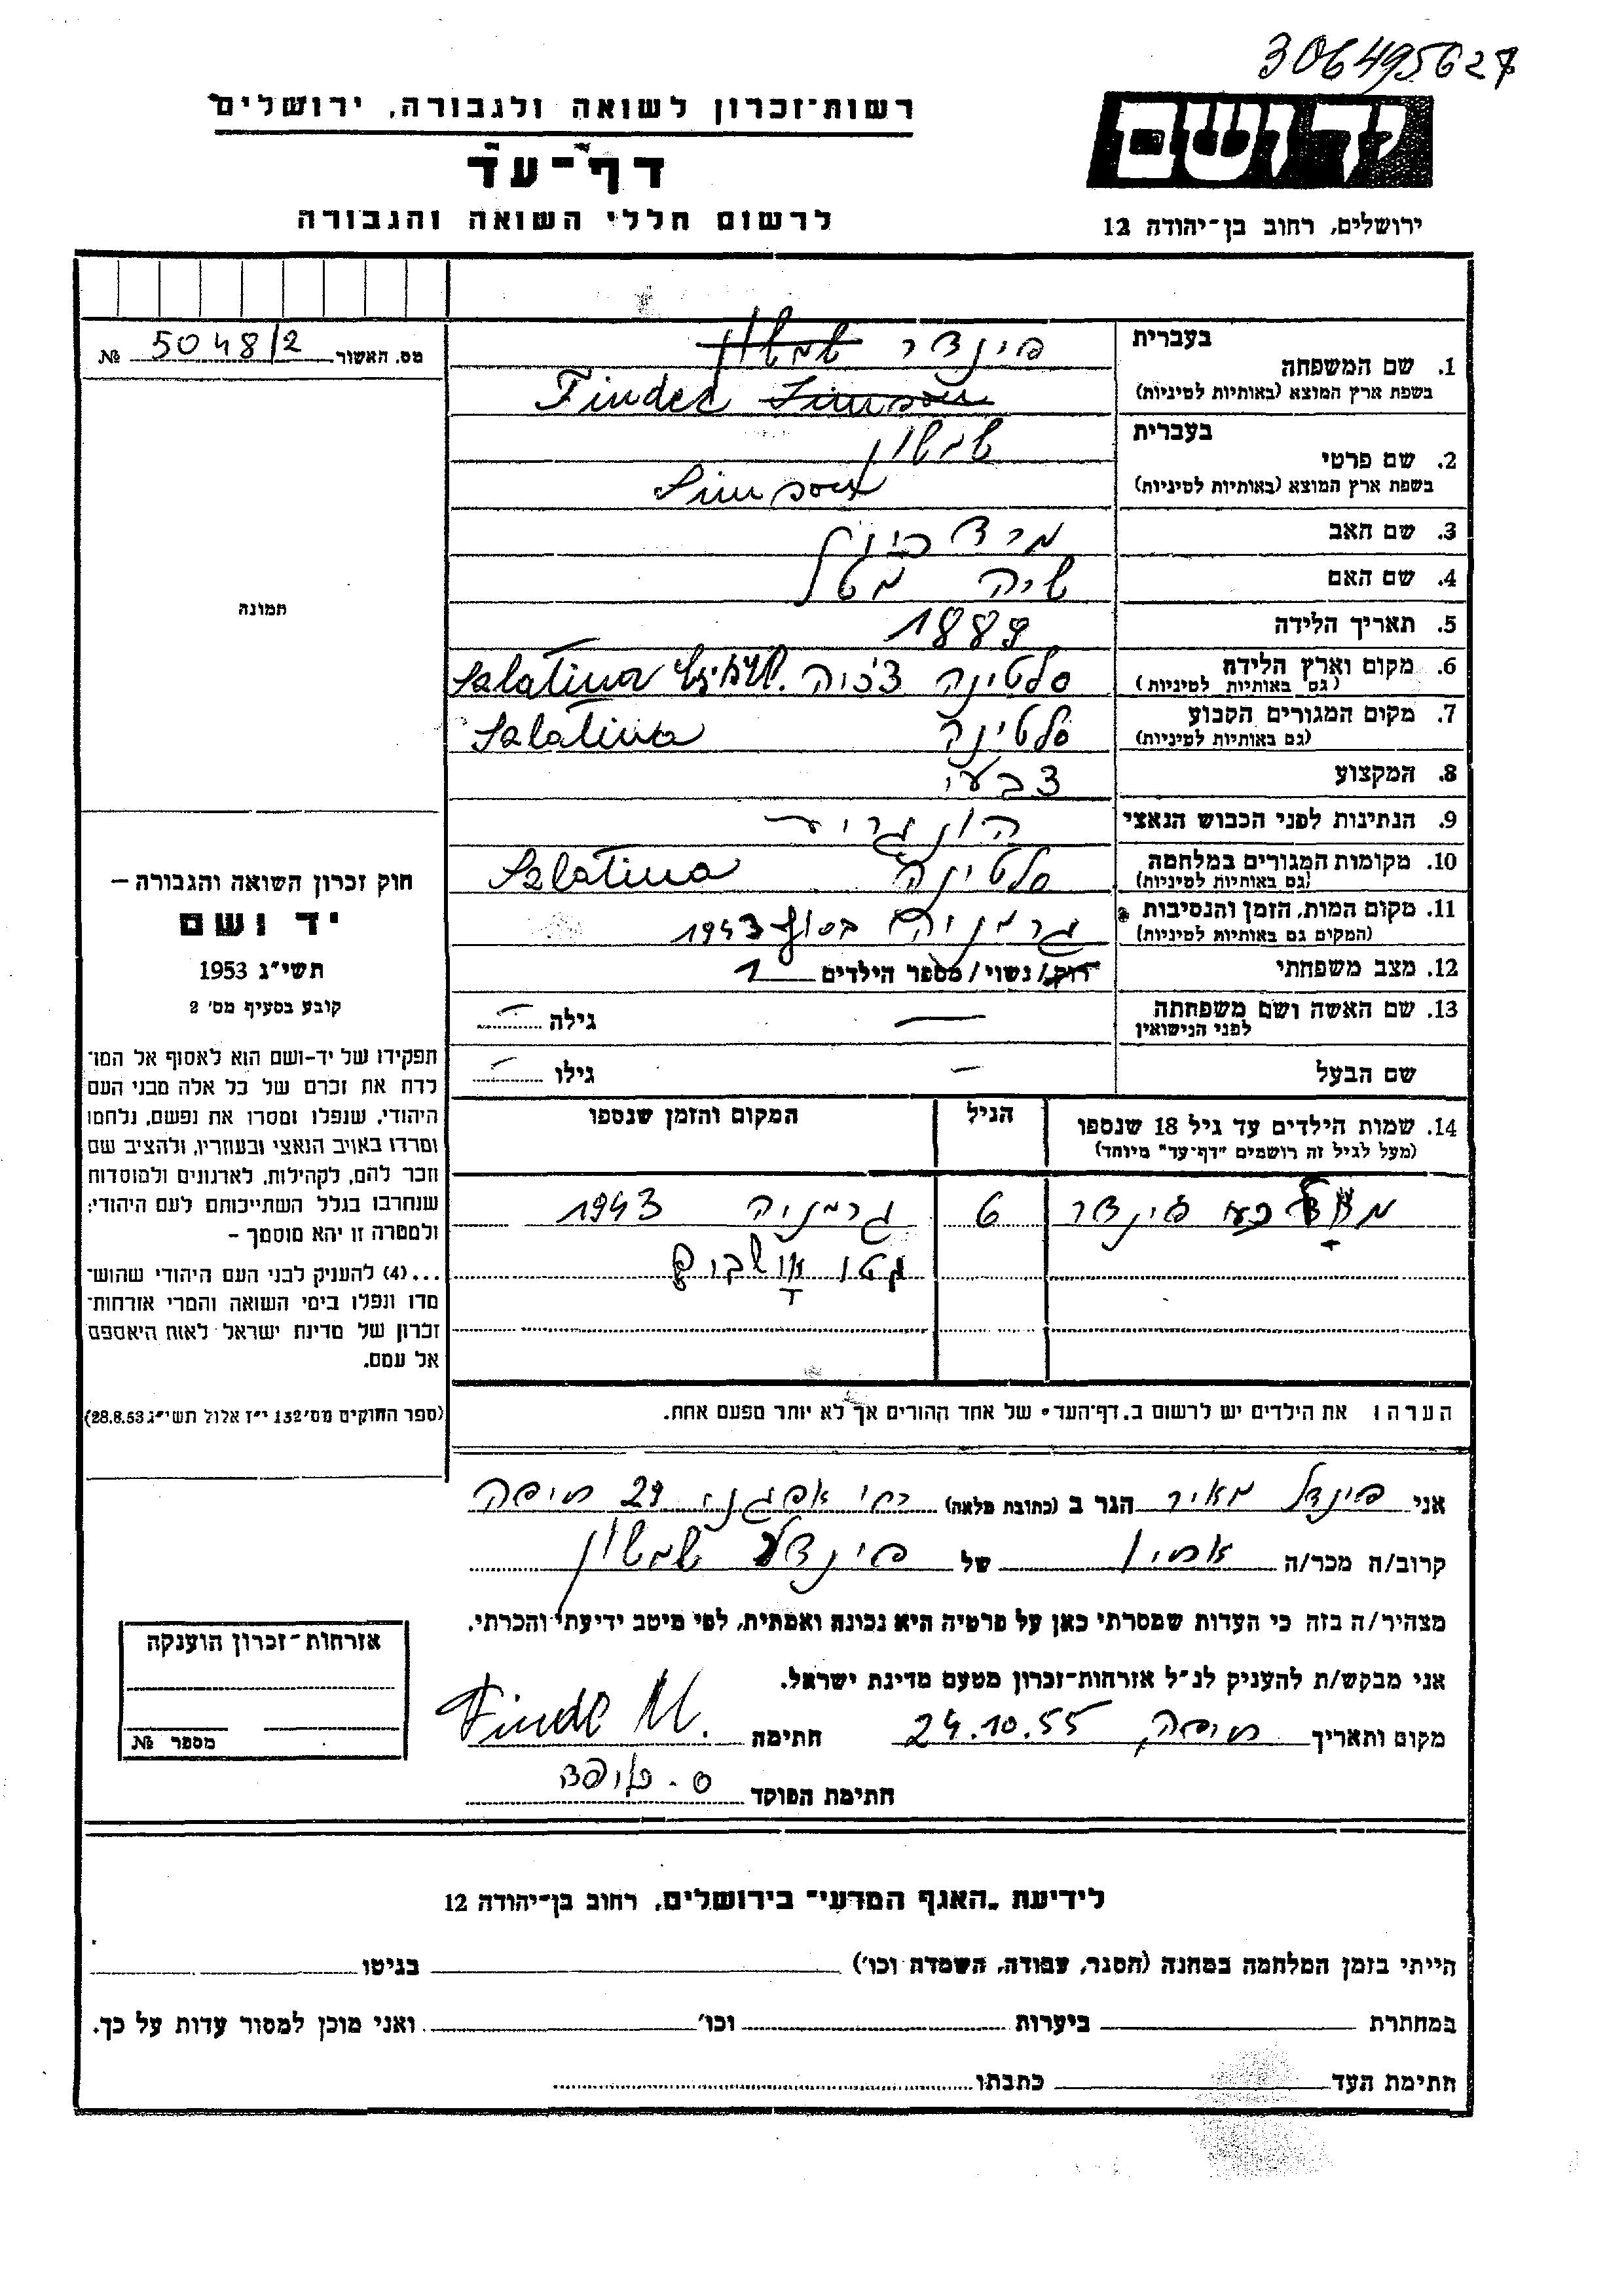 306495627
רשות־זכרון לשואה ולגבורה, ירושלים
דף־עד
לרשום חללי השואה והגבורה
יד ושם
ירושלים, רחוב בן־יהודה 12
מס. האשור 5048/2 №
תמונה
חוק זכרון השואה והגבורה –
יד ושם
תשי"ג 1953
קובע בסעיף מס' 2
תפקידו של יד-ושם הוא לאסוף אל המו־
לדת את זכרם של כל אלה מבני העם
היהודי, שנפלו ומסרו את נפשם, נלחמו
ומרדו באויב הנאצי ובעוזריו, ולהציב שם
וזכר להם, לקהילות, לארגונים ולמוסדות
שנחרבו בגלל השתייכותם לעם היהודי;
ולמטרה זו יהא מוסמך –
...(4) להעניק לבני העם היהודי שהוש־
מדו ונפלו בימי השואה והמרי אזרחות־
זכרון של מדינת ישראל לאות היאספם
אל עמם.
(ספר החוקים מס' 132 י"ז אלול תשי"ג 28.8.53)
בעברית פינדר שמשון
1. שם המשפחה
בשפת ארץ המוצא (באותיות לטיניות) Finder Simson
בעברית שמשון
2. שם פרטי
בשפת ארץ המוצא (באותיות לטיניות) Simson
3. שם האב
4. שם האם
5. תאריך הלידה 1889
6. מקום וארץ הלידה סלטינה צ'כיה Szlatina
(גם באותיות לטיניות)
7. מקום המגורים הקבוע סלטינה Szlatina
(גם באותיות לטיניות)
8. המקצוע צבעי
9. הנתינות לפני הכבוש הנאצי
10. מקומות המגורים במלחמה סלטינה Szlatina
(גם באותיות לטיניות)
11. מקום המות, הזמן והנסיבות גרמניה בסוף 1943
(המקום גם באותיות לטיניות)
12. מצב משפחתי רווק/נשוי/מספר הילדים 1
13. שם האשה ושם משפחתה — גילה —
לפני הנישואין
שם הבעל — גילו —
14. שמות הילדים עד גיל 18 שנספו הגיל המקום והזמן שנספו
(מעל לגיל זה רושמים "דף־עד" מיוחד)
פינדר 6 גרמניה 1943
גטו
הערה: את הילדים יש לרשום ב„דף־העד" של אחד ההורים אך לא יותר מפעם אחת.
אני פינדל מאיר הגר ב (כתובת מלאה) 29 חיפה
קרוב/ה מכר/ה אחין של פינדער שמשון
מצהיר/ה בזה כי העדות שמסרתי כאן על פרטיה היא נכונה ואמתית, לפי מיטב ידיעתי והכרתי.
אני מבקש/ת להעניק לנ"ל אזרחות־זכרון מטעם מדינת ישראל.
מקום ותאריך חיפה 24.10.55 חתימה Findl M.
חתימת הפוקד
אזרחות־זכרון הוענקה
מספר №
לידיעת „האגף המדעי" בירושלים, רחוב בן־יהודה 12
הייתי בזמן המלחמה במחנה (הסגר, עבודה, השמדה וכו') בגיטו
במחתרת ביערות וכו' ואני מוכן למסור עדות על כך.
חתימת העד כתבתו